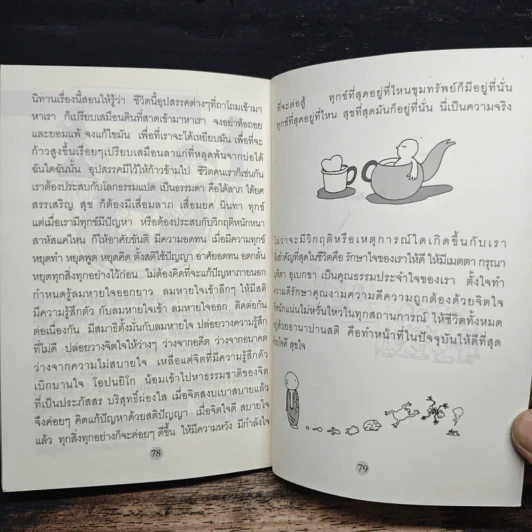 นิทานเรื่องนี้สอนให้รู้ว่า ชีวิตนี้อุปสรรคต่างๆที่ถาโถมเข้ามา
หาเรา ก็เปรียบเสมือนดินที่สาดเข้ามาหาเรา จงอย่าท้อถอย
และยอมแพ้ จงแก้ไขมัน เพื่อที่เราจะได้เหยียบมัน เพื่อที่จะ
ก้าวสูงขึ้นเรื่อยๆเปรียบเสมือนลาแก่ที่หลุดพ้นจากบ่อได้
ฉันใดฉันนั้น อุปสรรคมีไว้ให้ก้าวข้ามไป ชีวิตคนเราก็เช่นกัน
เราต้องประสบกับโลกธรรมแปด เป็นธรรมดา คือได้ลาภ ได้ยศ
สรรเสริญ สุข ก็ต้องมีเสื่อมลาภ เสื่อมยศ นินทา ทุกข์
แต่เมื่อเรามีทุกข์มีปัญหา หรือต้องประสบกับวิกฤติหนักหนา
สาหัสแค่ไหน ก็ให้อาศัยขันติ มีความอดทน เมื่อมีความทุกข์
หยุดทำ หยุดพูด หยุดคิด ตั้งสติใช้ปัญญา อาศัยอดทน อดกลั้น
หยุดทุกสิ่งทุกอย่างไว้ก่อน ไม่ต้องคิดที่จะแก้ปัญหาภายนอก
กำหนดรู้ลมหายใจออกยาว ลมหายใจเข้าลึกๆ ให้มีสติ
มีความรู้สึกตัว กับลมหายใจเข้า ลมหายใจออก ติดต่อกัน
ต่อเนื่องกัน มีสมาธิตั้งมั่นกับลมหายใจ ปล่อยวางความรู้สึก
ที่ไม่ดี ปล่อยวางจิตใจให้ว่างๆ ว่างจากอดีต ว่างจากอนาคต
ว่างจากความไม่สบายใจ เหลือแต่จิตที่มีความรู้สึกตัว
เบิกบานใจ โอปนยิโก น้อมเข้าไปหาธรรมชาติของจิต
ที่เป็นประภัสสร บริสุทธิ์ผ่องใส เมื่อจิตสงบเบาสบายแล้ว
จึงค่อยๆ คิดแก้ปัญหาด้วยสติปัญญา เมื่อจิตใจดี สบายใจ
แล้ว ทุกสิ่งทุกอย่างก็จะค่อยๆ ดีขึ้น ให้มีความหวัง มีกำลังใจ
78
ที่จะต่อสู้ ทุกข์ที่สุดอยู่ที่ไหนขุมทรัพย์ก็มีอยู่ที่นั่น
ทุกข์ที่สุดอยู่ที่ไหน สุขที่สุดมันก็อยู่ที่นั่น นี่เป็นความจริง
ไม่ว่าจะมีวิกฤติหรือเหตุการณ์ใดเกิดขึ้นกับเรา
สำคัญที่สุดในชีวิตคือ รักษาใจของเราให้ดี ให้มีเมตตา กรุณา
มุทิตา อุเบกขา เป็นคุณธรรมประจำใจของเรา ตั้งใจทำ
ความดีรักษาคุณงามความดีความถูกต้องด้วยจิตใจ
หนักแน่นไม่หวั่นไหวในทุกสถานการณ์ ให้ชีวิตทั้งหมด
อยู่ด้วยอานาปานสติ คือทำหน้าที่ในปัจจุบันให้ดีที่สุด
ใจดี สุขใจ
79